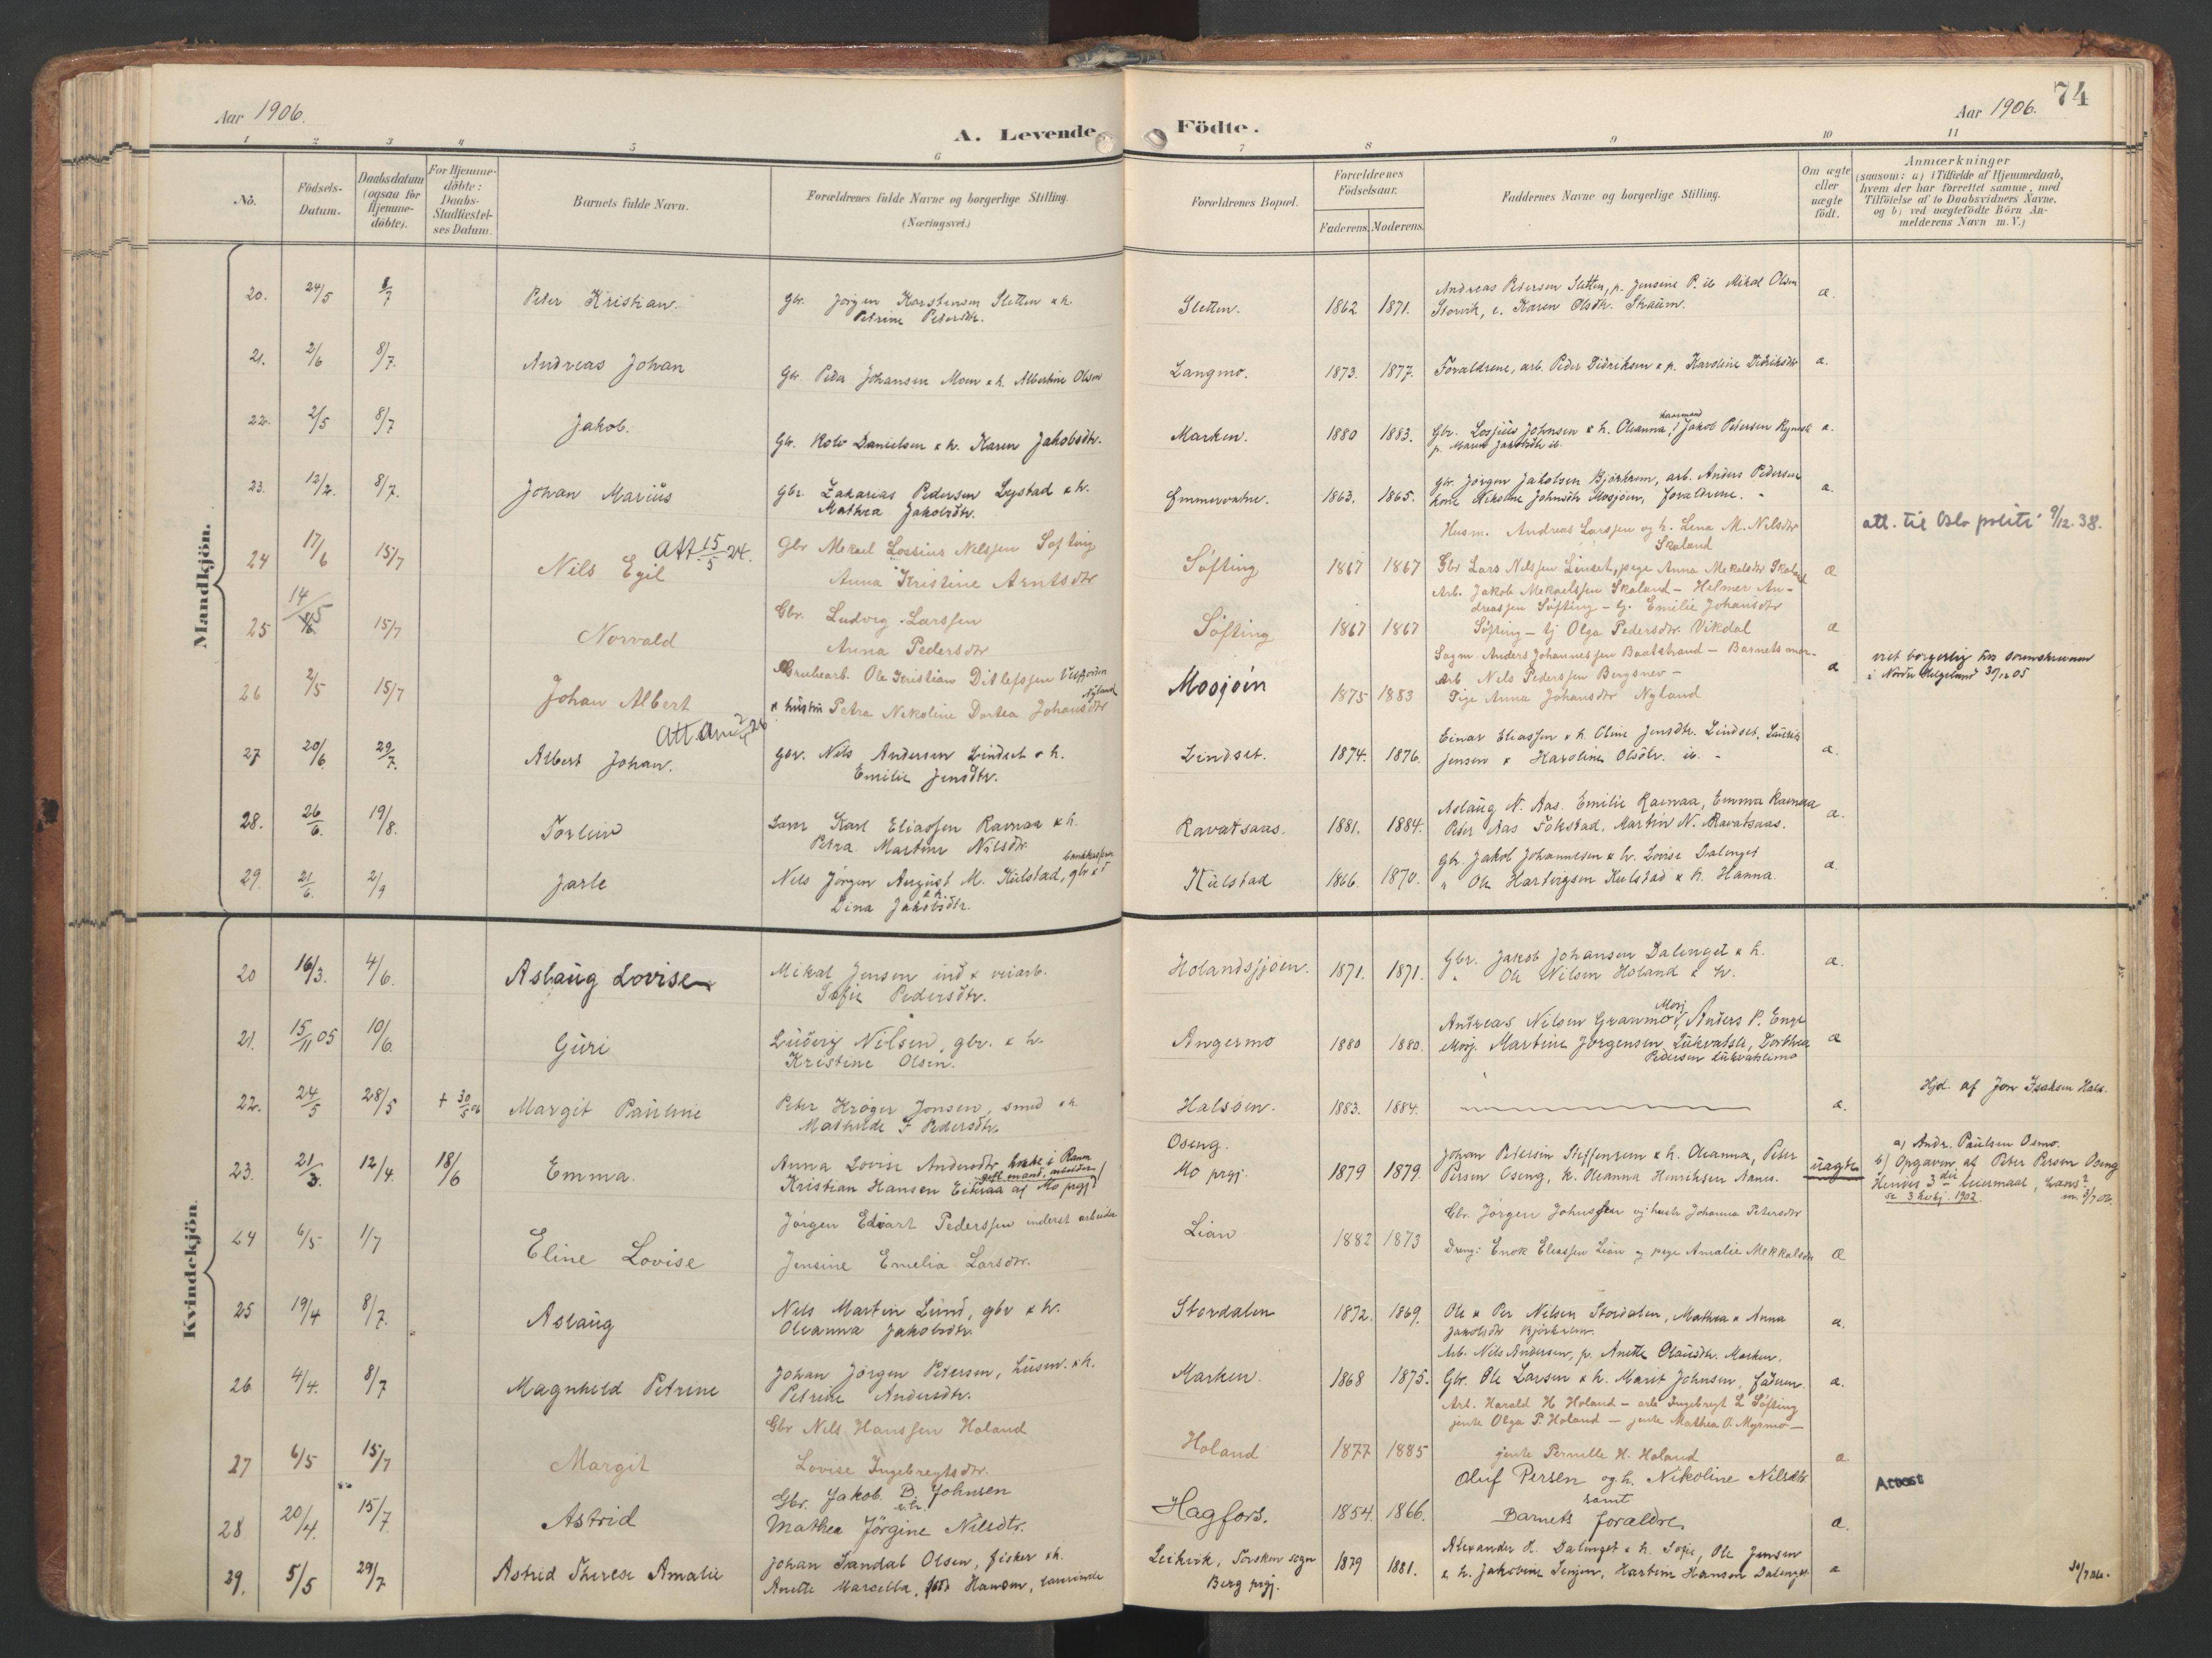 Aar 1906.
A. Levende
Födte.
Aar 1906.
74
1 2 3 4 5 6 7 8 9 10 11
No.
Födsels-
Datum.
Daabsdatum
(ogsaa for
Hjemme-
döbte).
For Hjemme-
döbte:
Daabs-
Stadfæstel-
ses Datum.
Barnets fulde Navn.
Forældrenes fulde Navne og borgerlige Stilling.
(Næringsvei.)
Forældrenes Bopæl.
Forældrenes
Födselsaar.
Faderens.
Moderens.
Faddernes Navne og borgerlige Stilling.
Om ægte
eller
uægte
födt.
Anmærkninger
(saasom: a) i Tilfælde af Hjemmedaab,
hvem der har forrettet samme, med
Tilföielse af to Daabsvidners Navne,
og b) ved uægtefödte Börn An-
melderens Navn m. V.)
Mandkjön.
20. 24/5 Peter Kristian. Gbr. Jörgen Karstensen Sletten & h.
Petrine Pedersdtr.
Sletten. 1862 1871. Andreas Pedersen Sletten, p. Jensine P. ib Mikal Olsen
Storvik, e. Karen Olsdtr. Skaum. æ.
21. 2/6 8/7. Andreas Johan Gbr. Peder Johansen Moen & h. Albertine Olsen
Langmo. 1873. 1877. Forældrene, arb. Peder Didriksen & p. Karoline Didriksdtr æ.
22. 2/5 8/7 Jakob. Gbr. Rolv Danielsen & h. Karen Jakobsdtr.
Marken. 1880 1883. Gbr. Johnsen & h. Oleanna, Jakob Petersen
p. Maren Jakobsdtr ib. æ.
23. 12/2. 8/7. Johan Marius Gbr. Zakarias Pedersen & h.
Mathea Jakobsdtr.
Emmervatne. 1863. 1865. Gbr. Jörgen Jakobsen Björkrem, arb. Anders Pedersen
kone Nikoline Johnsdtr Mosjöen, forældrene. æ.
24 17/6 15/7 Nils Egil Att 15/5 24. Gbr Mekael Lossius Nilssen Søfting
Anna Kristine Arntsdtr
Søfting 1867 1867 Husm. Andreas Larssen og h. Lina M. Nilsdtr
Skaland
Gbr Lars Nilssen Linset, pige Anna Mekalsdtr Skaland æ
att. til Oslo politi 9/12.38.
25 14/5 15/7 Norvald Gbr. Ludvig Larssen
Anna Pedersdtr
Søfting 1867 1867 Arb. Jakob Mekaelssen Skaland – Helmer An-
dreassen Søfting – tj. Emilie Johansdtr
Søfting – tj Olga Pedersdtr. Vikdal æ
26 2/5 15/7 Johan Albert Grubearb. Ole Kristian Ditlefssen
& hustru Petra Nikoline Dortea Johansdtr Nyland
Mosjöen 1875 1883 Sagm. Anders Johannessen Baatstrand – Barnets mor –
Arb Nils Pederssen Bergsnev –
Pige Anna Johansdtr Nyland æ
viet borgerlig hos sorenskriveren
i Nordre Helgeland 30/12 05
27 20/6 29/7. Albert Johan. Gbr. Nils Andersen Lindset & h.
Emilie Jensdtr.
Lindset. 1874. 1876. Einar Eliassen & h. Oline Jensdtr. Lindset, Laurits
Jensen & Karoline Olsdtr. ib. – æ.
28. 26/6. 19/8. Torleiv Karl Eliassen Ravnaa & h.
Petra Martine Nilsdtr.
Ravatsaas. 1881. 1884. Aslaug N. Aas. Emilie Ravnaa, Emma Ravnaa
Peter Aas Fokstad. Martin N. Ravatsaas. æ.
29. 21/6. 2/9 Jarle Nils Jörgen August M. Kulstad, gbr &
Lina Jakobsdtr.
Kulstad 1866. 1870. Gbr. Jakob Johannesen & h. Lovise Dalenget
" Ole Hartvigsen Kulstad & h. Hanna. æ.
Kvindekjön.
20 16/3. 4/6. Aslaug Lovise Mikal Jensen ind & veiarb.
Sofie Pedersdtr.
Holandsjöen. 1871. 1871. Gbr. Jakob Johansen Dalenget & h.
" Ole Nilsen Holand & h. æ.
21. 15/11 05 10/6. Guri Ludvig Nilsen, gbr. & h.
Kristine Olsen.
Angermo 1880 1880. Andreas Nilsen Granmo Mosj, Anders P. Enge
Mosj. Martine Jörgensen, Lukvatsli, Dorthea
Pedersen Lukvatslimo æ
22. 24/5 28/5 + 30/5 06 Margit Pauline Peter Kröger Jonsen, smed & h.
Mathilde F Pedersdtr.
Halsöen. 1883. 1884. æ.
Hjd. af Jon Isaksen Hals.
23. 21/3. 12/4. 18/6 Emma. Anna Lovise Andersdtr.
Kristian Hansen Eiteraa af Mo prgj
gift mand, arbeider
Oseng.
Mo prgj. 1879 1879. Johan Petersen Steffensen & h. Oleanna, Peter
Persen Oseng, k. Oleanna Henriksen Nanes. uægte
a) Andr. Paulsen Osmo.
b) Opgaven af Peter Persen Oseng
Hendes 3die leiermaal, hans?
se 3 kvkj. 1902.
24 6/5 1/7 Eline Lovise Jörgen Edvart Pederssen inderst arbeider
Jensine Emelia Larsdtr.
Lian 1882 1873 Gbr. Jörgen Johnssen og hustr Johanna Petersdtr
Dreng: Enok Eliassen Lian og pige Amalie Mekkalsdtr æ
25 19/4 8/7. Aslaug Nils Martin Lund, gbr & h.
Oleanna Jakobsdtr.
Stordalen 1872. 1869. Ole & Per Nilsen Stordalen, Mathea & Anna
Jakobsdtr Björkrem. æ.
26 4/4. 8/7 Magnhild Petrine Johan Jörgen Petersen, husm. & h.
Petrine Andersdtr.
Marken. 1868 1875. Arb. Nils Andersen, p. Anette Olausdtr. Marken.
Gbr. Ole Larsen & h. Marit Johnsen, faderen. æ.
27 6/5 15/7 Margit Gbr Nils Hanssen Holand
Lovise Ingebregtsdtr.
Holand 1877 1885 Arb. Harald H Holand – arb Ingebregt L Søfting
jente Olga P. Holand – jente Mathea O. Myrmo –
jente Pernille H. Holand æ
28 20/4. 15/7 Astrid Gbr. Jakob B. Johnsen
Mathea Jörgine Nilsdtr.
Hagfors. 1854. 1866. Oluf Persen og h. Nikoline Nilsdtr
samt
Barnets forældre æ.
Attest
29. 5/5 29/7 Astrid Therese Amalie Johan Sandal Olsen, fisker & h.
Anette Marsella, född Hansen,
Leikvik, Torsken sogn
Berg prgj. 1879 1881. Alexander H. Dalenget & h. Sofie, Ole Jensen
& h. Jakobine Hansen Dalenget æ